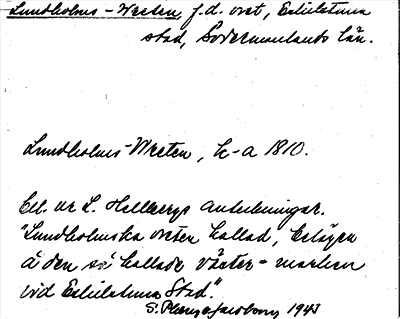 Lundholms-Vreten, f.d. vret, Eskilstuna
stad, Södermanlands län.
Lundholms-Vreten, k-a 1810.
Enl. ur L. Hellbergs anteckningar.
"Lundholmska vreten kallad, belägen
å den så kallade Växter-marken
vid Eskilstuna Stad".
1943